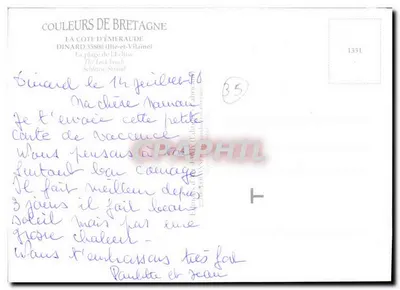 COULEURS DE BRETAGNE
LA COTE D'EMERAUDE
DINARD 35800 (Ille-et-Vilaine)
La plage de l'Ecluse
1351
35
Dinard le 14 juillet 96
Ma chère Maman
Je t'envoie cette petite
carte de vaccence
Nous pensons a vous
surtout bon courage
Il fait meilleur depuis
3 jours il fait beau
soleil mais pas une
grosse chaleur -
Nous t'embrassons très fort
Paulette et Jean
CPAPHIL